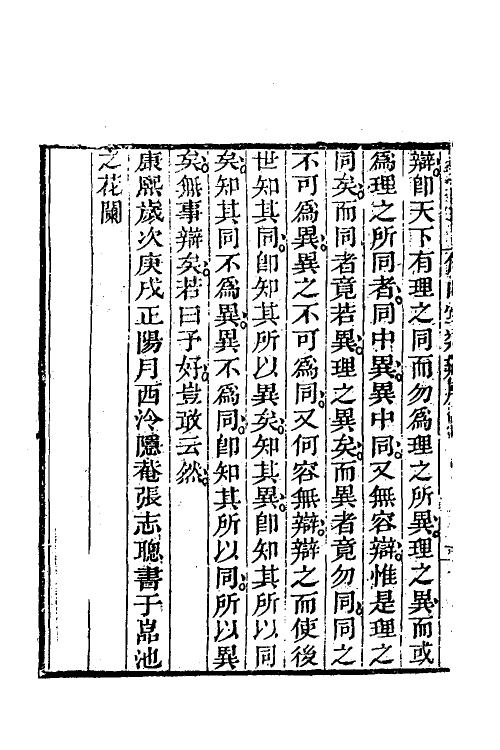 辯卽天下有理之同而勿爲理之所異理之異而或
爲理之所同者同中異異中同又無容辯惟是理之
同矣而同者竟若異理之異矣而異者竟勿同同之
不可爲異異之不可爲同又何容無辯辯之而使後
世知其同卽知其所以異矣知其異卽知其所以同
矣知其同不爲異異不爲同卽知其所以同所以異
矣無事辯矣若曰予好豈敢云然
康熙歲次庚戌正陽月西泠隱菴張志聰書于峝池
之花闌